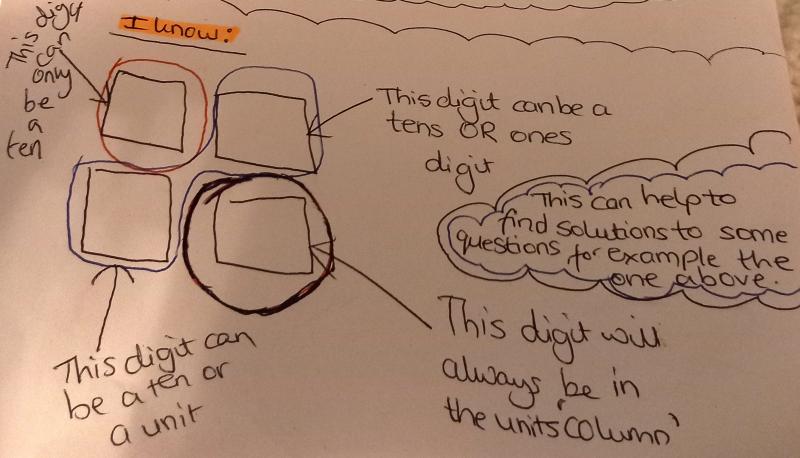 I know:
This digit
can
only
be
a
ten
This digit can be a
tens OR ones
digit
This can help to
find solutions to some
questions for example the
one above.
This digit can
be a ten or
a unit
This digit will
always be in
the units 'column'